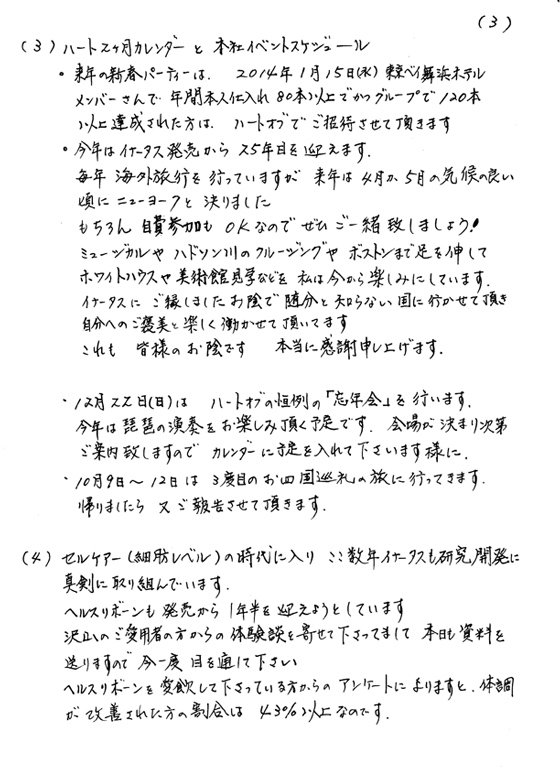 (3)
(3) ハート2ヶ月カレンダーと本社イベントスケジュール
・来年の新春パーティーは、2014年1月15日(水)東京ベイ舞浜ホテル
メンバーさんで年間本人仕入れ80本以上でかつグループで120本
以上達成された方は、ハートオブでご招待させて頂きます
・今年はイータス発売から25年目を迎えます。
毎年海外旅行を行っていますが来年は4月か5月の気候の良い
頃にニューヨークと決りました
もちろん自費参加もOKなのでぜひご一緒致しましょう!
ミュージカルやハドソン川のクルージングやボストンまで足を伸して
ホワイトハウスや美術館見学などを私は今から楽しみにしています。
イータスにご縁しましたお陰で随分と知らない国に行かせて頂き
自分へのご褒美と楽しく働かせて頂いてます
これも皆様のお陰です 本当に感謝申し上げます。
・12月22日(日)はハートオブの恒例の「忘年会」を行います。
今年は琵琶の演奏をお楽しみ頂く予定です。会場が決まり次第
ご案内致しますのでカレンダーに予定を入れて下さいます様に。
・10月9日〜12日は3度目のお四国巡礼の旅に行ってきます。
帰りましたら又ご報告させて頂きます。
(4) セルケアー(細肪レベル)の時代に入りここ数年イータスも研究開発に
真剣に取り組んでいます。
ヘルスリボーンも発売から1年半を迎えようとしています
沢山のご愛用者の方からの体験談を寄せて下さってまして本日も資料を
送りますので今一度目を通して下さい
ヘルスリボーンを愛飲して下さっている方からのアンケートによりますと、体調
が改善された方の割合は43%以上なのです。